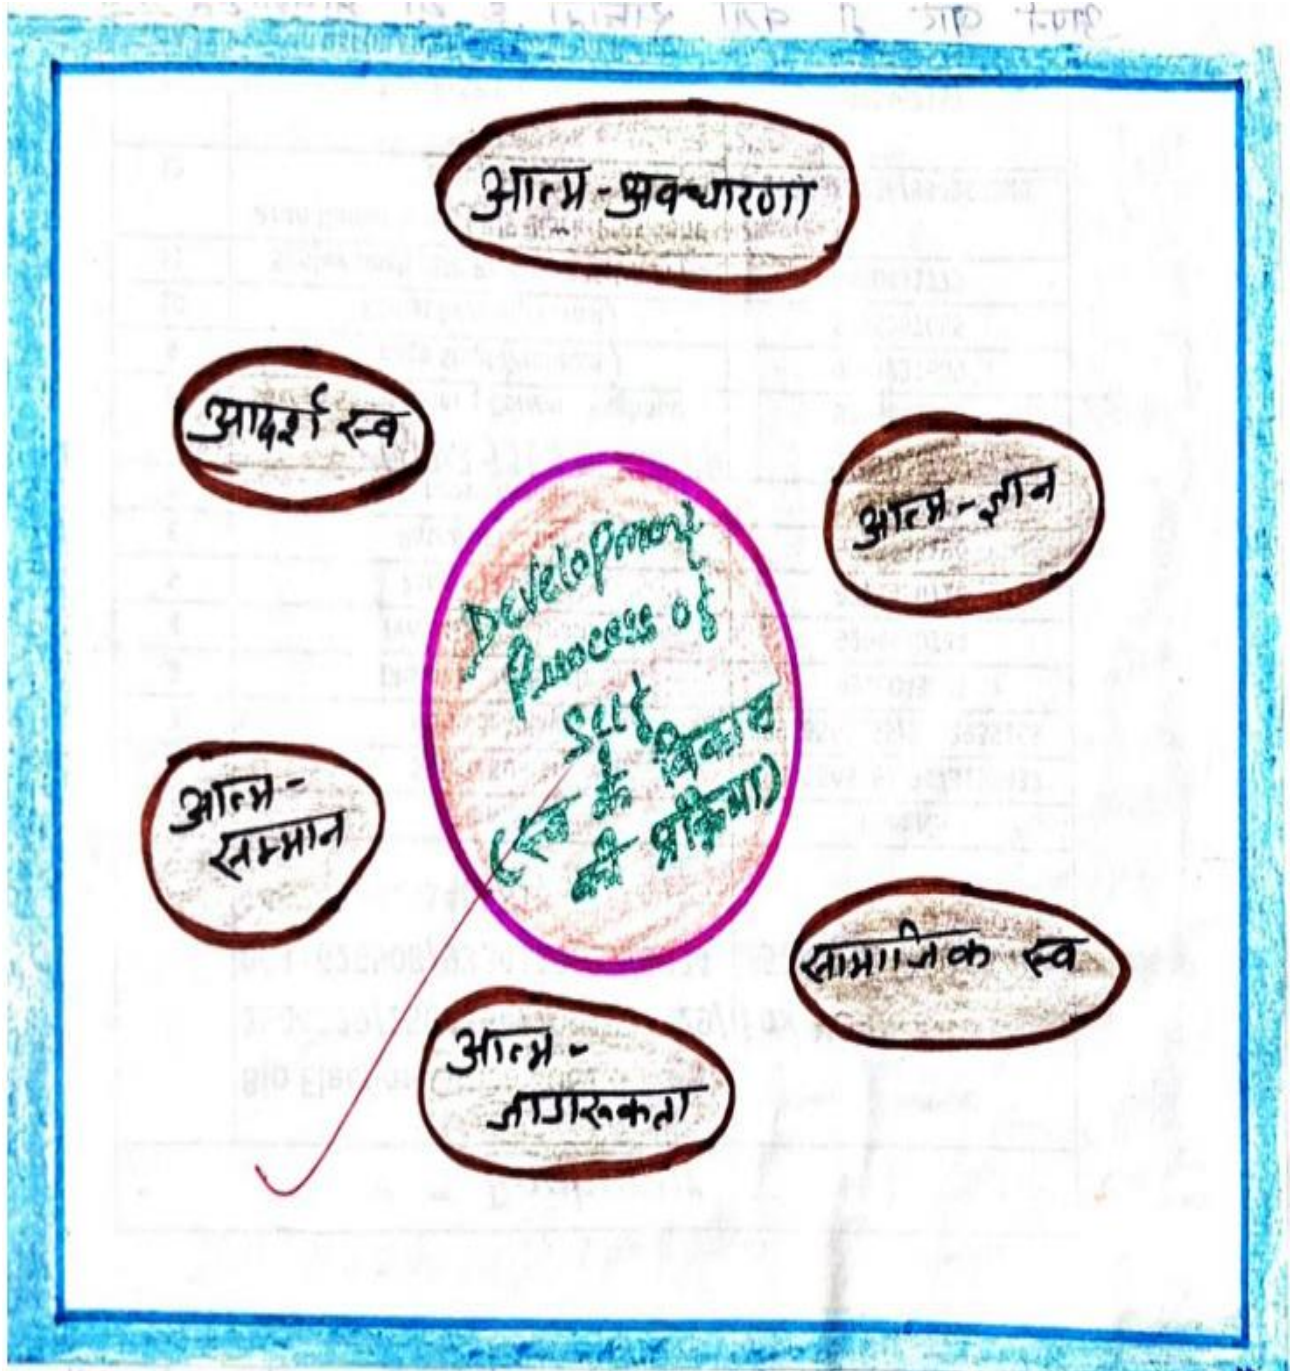 आत्म-अवधारणा
आदर्श स्व
आत्म-ज्ञान
Development
Process of
Self
(स्व के विकास
की प्रक्रिया)
आत्म-
सम्मान
सामाजिक स्व
आत्म-
जागरूकता